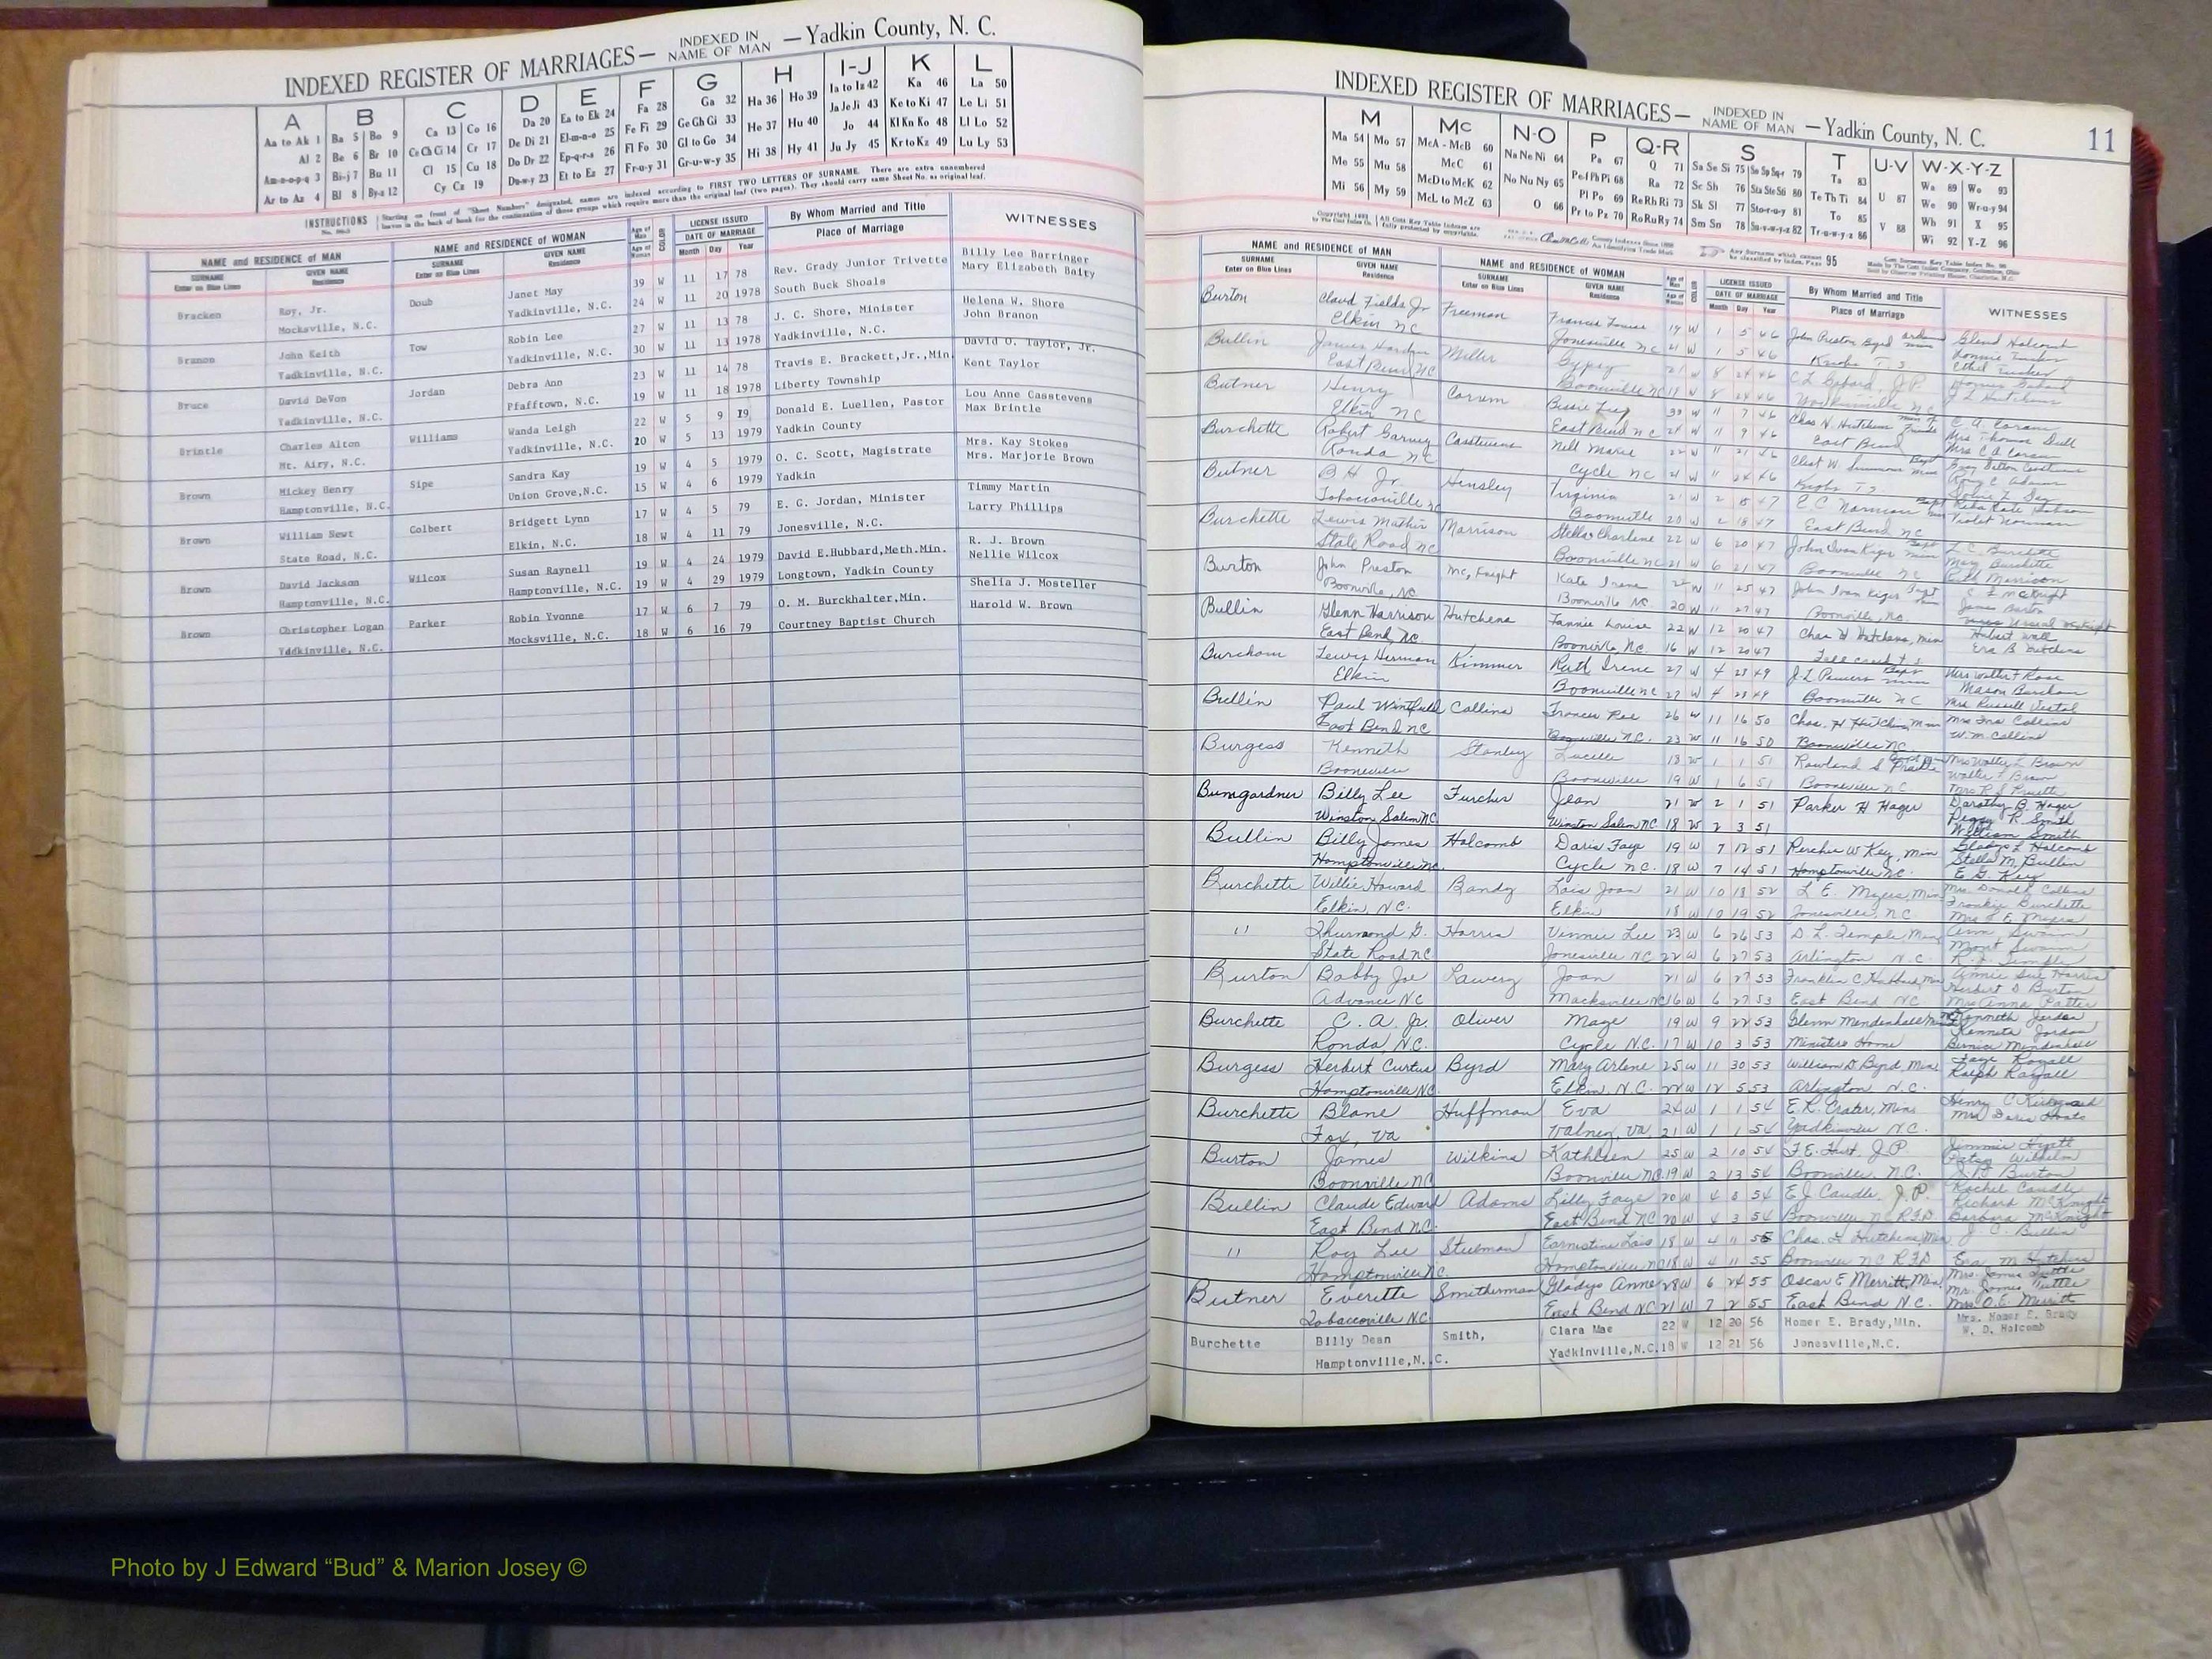 INDEXED REGISTER OF MARRIAGES— INDEXED IN NAME OF MAN —Yadkin County, N. C.
A B C D E F G H I-J K L
Aa to Ak 1 Ba 5 Bo 9 Ca 13 Co 16 Da 20 Ea to Ek 24 Fa 28 Ga 32 Ha 36 Ho 39 Ia to Iz 42 Ka 46 La 50
Al 2 Be 6 Br 10 Ce Ch Ci 14 Cr 17 De Di 21 El-m-n-o 25 Fe Fi 29 Ge Gh Gi 33 He 37 Hu 40 Ja Je Ji 43 Ke to Ki 47 Le Li 51
Am-n-o-p-q 3 Bi-j 7 Bu 11 Cl 15 Cu 18 Do Dr 22 Ep-q-r-s 26 Fl Fo 30 Gl to Go 34 Hi 38 Hy 41 Jo 44 Kl Kn Ko 48 Ll Lo 52
Ar to Az 4 Bl 8 By-z 12 Cy Cz 19 Du-w-y 23 Et to Ez 27 Fr-u-y 31 Gr-u-w-y 35 Ju Jy 45 Kr to Kz 49 Lu Ly 53
INSTRUCTIONS Starting on front of "Sheet Numbers" designated, names are indexed according to FIRST TWO LETTERS OF SURNAME. There are extra unnumbered
leaves in the back of book for the continuation of those groups which require more than the original leaf (two pages). They should carry same Sheet No. as original leaf.
NAME and RESIDENCE OF MAN NAME and RESIDENCE OF WOMAN LICENSE ISSUED By Whom Married and Title WITNESSES
SURNAME GIVEN NAME SURNAME GIVEN NAME Age of Man COLOR DATE OF MARRIAGE Place of Marriage
Enter on Blue Lines Residence Enter on Blue Lines Residence Age of Woman Month Day Year
Bracken Roy, Jr. Doub Janet May 39 W 11 17 78 Rev. Grady Junior Trivette Billy Lee Barringer
Mocksville, N.C. Yadkinville, N.C. 24 W 11 20 1978 South Buck Shoals Mary Elizabeth Baity
Branon John Keith Tow Robin Lee 27 W 11 13 78 J. C. Shore, Minister Helena W. Shore
Yadkinville, N.C. Yadkinville, N.C. 30 W 11 13 1978 Yadkinville, N.C. John Branon
Bruce David DeVon Jordan Debra Ann 23 W 11 14 78 Travis E. Brackett,Jr.,Min. David O. Taylor, Jr.
Yadkinville, N.C. Pfafftown, N.C. 19 W 11 18 1978 Liberty Township Kent Taylor
Brintle Charles Alton Williams Wanda Leigh 22 W 5 9 79 Donald E. Luellen, Pastor Lou Anne Casstevens
Mt. Airy, N.C. Yadkinville, N.C. 20 W 5 13 1979 Yadkin County Max Brintle
Brown Mickey Henry Sipe Sandra Kay 19 W 4 5 1979 O. C. Scott, Magistrate Mrs. Kay Stokes
Hamptonville, N.C. Union Grove,N.C. 15 W 4 6 1979 Yadkin Mrs. Marjorie Brown
Brown William Newt Colbert Bridgett Lynn 17 W 4 5 79 E. G. Jordan, Minister Timmy Martin
State Road, N.C. Elkin, N.C. 18 W 4 11 79 Jonesville, N.C. Larry Phillips
Brown David Jackson Wilcox Susan Raynell 19 W 4 24 1979 David E.Hubbard,Meth.Min. R. J. Brown
Hamptonville, N.C. Hamptonville, N.C. 19 W 4 29 1979 Longtown, Yadkin County Nellie Wilcox
Brown Christopher Logan Parker Robin Yvonne 17 W 6 7 79 O. M. Burckhalter,Min. Shelia J. Mosteller
Yadkinville, N.C. Mocksville, N.C. 18 W 6 16 79 Courtney Baptist Church Harold W. Brown
INDEXED REGISTER OF MARRIAGES— INDEXED IN NAME OF MAN —Yadkin County, N. C. 11
M Mc N-O P Q-R S T U-V W-X-Y-Z
Ma 54 Mo 57 McA - McB 60 Na Ne Ni 64 Pa 67 Q 71 Sa Se Si 75 Sn Sp Sq-r 79 Ta 83 U 87 Wa 89 Wo 93
Me 55 Mu 58 McC 61 No Nu Ny 65 Pe Pf Ph Pi 68 Ra 72 Sc Sh 76 Sta Ste Sti 80 Te Th Ti 84 V 88 We 90 Wr-u-y 94
Mi 56 My 59 McD to McK 62 O 66 Pl Po 69 Re Rh Ri 73 Sk Sl 77 Sto-r-u-y 81 To 85 Wh 91 X 95
McL to McZ 63 Pr to Pz 70 Ro Ru Ry 74 Sm Sn 78 Su-v-w-y-z 82 Tr-u-w-y-z 86 Wi 92 Y-Z 96
Any Surname which cannot be classified by Index, Page 95
NAME and RESIDENCE OF MAN NAME and RESIDENCE OF WOMAN LICENSE ISSUED By Whom Married and Title WITNESSES
SURNAME GIVEN NAME SURNAME GIVEN NAME Age of Man COLOR DATE OF MARRIAGE Place of Marriage
Enter on Blue Lines Residence Enter on Blue Lines Residence Age of Woman Month Day Year
Burton Claud Fields Jr Freeman Francis Louise 19 W 1 5 46 John Preston Byrd Glend Holcomb
Elkin NC Jonesville NC 21 W 1 5 46 Knobs T. S
Bullin James Miller Gypsy 21 W 8 24 46 J.P.
East Bend NC Boonville NC 19 W 8 24 46 Yadkinville NC
Butner Henry Carson Bessie 39 W 11 7 46 Chas N. Hutchens
Elkin NC East Bend NC 24 W 11 9 46 East Bend Mrs Thomas Dull
Burchette Robert Garvey Casstevens Nell Marie 22 W 11 21 46 Clest W. Simmons
Ronda, NC Cycle NC 21 W 11 24 46 Knobs T S
Butner B H Jr. Hensley Virginia 21 W 2 8 47 E C Norman
Tobaccoville NC Boonville 20 W 2 18 47 East Bend NC Violet Norman
Burchette Lewis Mathis Morrison Stella Charlene 22 W 6 20 47 John Ivan Kiger L. C. Burchette
State Road NC Boonville NC 21 W 6 21 47 Boonville NC May Burchette
Burton John Preston McKnight Kate Irene 22 W 11 25 47 John Ivan Kiger
Boonville, NC Boonville NC. 20 W 11 27 47 Boonville, NC. James Burton
Bullin Glenn Harrison Hutchens Fannie Louise 22 W 12 20 47 Chas H Hutchens, min Hubert Wall
East Bend, NC Boonville, NC 16 W 12 20 47 Era B. Hutchens
Burcham Lewis Herman Kimmer Ruth Irene 27 W 4 23 49 J. L. Powers Mrs Walter F Rose
Elkin Boonville NC 27 W 4 23 49 Boonville NC Mason Burcham
Bullin Paul Winfield Collins Frances Rae 26 W 11 16 50 Chas. H Hutchins, Min Mrs Ina Collins
East Bend NC Boonville N.C. 23 W 11 16 50 Boonville NC W. M. Collins
Burgess Kenneth Stanley Lucille 18 W 1 1 51 Rowland S Pruitte Mrs Walter L Brown
Booneville Booneville 19 W 1 6 51 Booneville NC Walter L Brown
Bumgardner Billy Lee Furches Jean 21 W 2 1 51 Parker H Hager Dorothy B Hager
Winston Salem NC Winston Salem NC 18 W 2 3 51 Peggy R. Smith
William Smith
Bullin Billy James Holcomb Doris Faye 19 W 7 12 51 Percher W Key, Min Gladys L Holcomb
Hamptonville NC. Cycle N.C. 18 W 7 14 51 Hamptonville NC. Stella M. Bullin
E. G. Key
Burchette Willie Howard Bandy Lois Joan 21 W 10 18 52 L E. Myers, Min Mrs. Donald Collins
Elkin, N.C. Elkin 18 W 10 19 52 Jonesville, NC Frankie Burchette
Mrs L. E. Myers
" Thurmond G. Harris Vinnie Lee 23 W 6 26 53 D. L. Temple, Min Swaim
State Road NC Jonesville NC 22 W 6 27 53 Arlington N.C. Mont Swaim
Burton Bobby Joe Lowery Joan 21 W 6 27 53 Franklin C Hubbard, Min Annie Sue Harris
Advance NC Mocksville NC 16 W 6 27 53 East Bend NC Herbert D Burton
Burchette C. A. Jr. Oliver Maye 19 W 9 22 53 Glenn Mendenhall Min Kenneth Jordan
Ronda, N.C. Cycle N.C. 17 W 10 3 53 Ministers Home Bernice Mendenhall
Burgess Herbert Curtis Byrd Mary Arlene 25 W 11 30 53 William D Byrd Min Faye Royall
Hamptonville NC. Elkin, N.C. 22 W 12 5 53 Arlington N.C. Ralph Royall
Burchette Blane Huffman Eva 24 W 1 1 54 E. R. Crater, Min
Fox, Va Volney, Va 21 W 1 1 54 Yadkinville N.C.
Burton James Wilkins Kathleen 25 W 2 10 54 F. E. Hurt, J.P. Jimmie Hyatt
Boonville NC Boonville NC. 19 W 2 13 54 Boonville, N.C. Burton
Bullin Claude Edward Adams Lilly Faye 20 W 4 3 54 E J Caudle, J.P. Rachel Caudle
East Bend NC. East Bend NC 20 W 4 3 54 Boonville NC RFD Richard McKnight
Barbara McKnight
" Roy Lee Steelman Earnistine Lois 18 W 4 11 55 Chas. H Hutchens, Min J. C. Bullin
Hamptonville NC Hamptonville NC 18 W 4 11 55 Boonville NC RFD Era M Hutchens
Butner Everette Smitherman Gladys Anne 28 W 6 24 55 Oscar E Merritt, Min. Mr. James Tuttle
Tobaccoville NC. East Bend NC 21 W 7 2 55 East Bend N.C. Mrs O. E. Merritt
Burchette Billy Dean Smith, Clara Mae 22 W 12 20 56 Homer E. Brady,Min. Mrs. Homer E. Brady
Hamptonville,N.C. Yadkinville,N.C. 18 W 12 21 56 Jonesville,N.C. W. D. Holcomb
Photo by J Edward “Bud” & Marion Josey ©